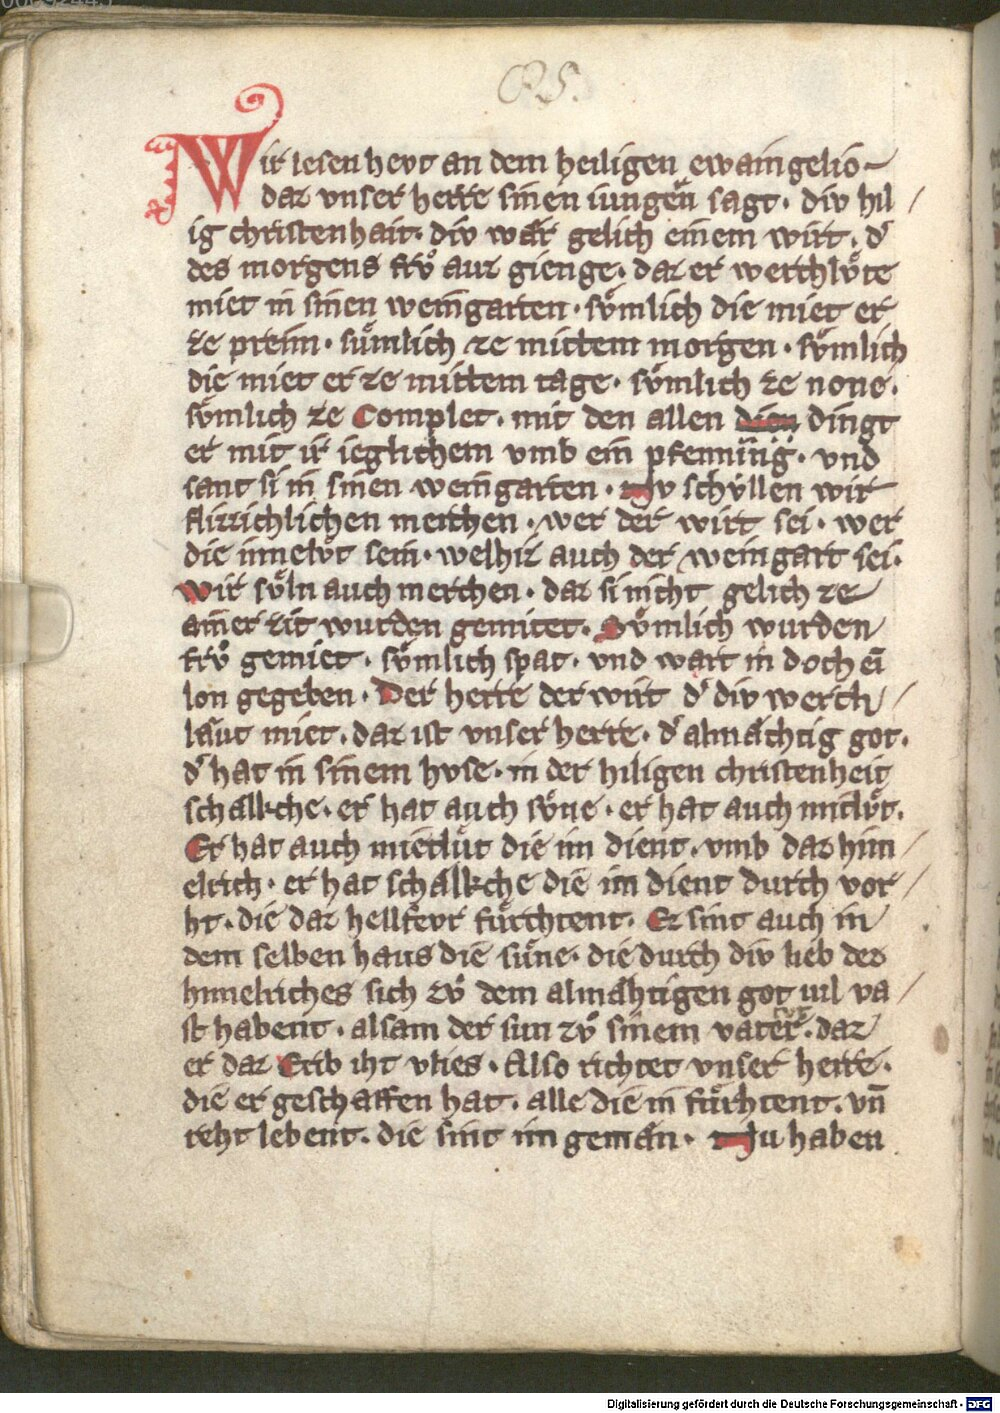 Wir lesen hevt an dem heiligen ewaingelio
daz vnser herre sinen iungeͤn sagt · div hil /
ig christenhait · div waͤr gelich einem wirt · dˀ
des morgens frvͦ auz gienge · daz er werchlvͤte
miet in sinen weingarten · svͤmlich die miet er
ze preim · suͤmlich ze mittem morgen · svͤmlich
die miet er ze mittem tage · svͤmlich ze none ·
svͤmlich ze Complet · mit den allen dingt
er mit ir ieglichem vmb ein pfenning · vnd
sant si in sinen weingarten · Nv schvͤllen wir
flizzichlichen merchen · wer der wirt sei · wer
die mietlvͤt sein · welhiz auch der weingart sei ·
Wir svͤln auch merchen · daz si nicht gelich ze
ainer zit wurden gemitet · Svͤmlich wurden
frvͦ gemiet · svͤmlich spat · vnd wart in doch ei̅
lon gegeben · Der herre der wirt dˀ div werch /
laͤut miet · daz ist vnser herre · dˀ almaͤchtig got ·
dˀ hat in sinem hvse · in der hiligen christenheit
schalkche · er hat auch svͤne · er hat auch mietlvͤt ·
Er hat auch mietluͤt die im dient · vmb daz him /
elrich · er hat schaͤlkche die im dient durch vor /
ht · die daz hellfevr fuͤrchtent · Ez sint auch in
dem selben haus die suͤne · die durch div lieb dez
himelriches sich zvͦ dem almaͤhtigen got uil va /
st habent · alsam der sun zvͦ sinem vater · daz
er daz Erib iht vlies · Also richtet vnser herre ·
die er geschaffen hat · alle die in fuͤrhtent · vn̅
reht lebent · die sint im gemaͤn · Nu haben
Digitalisierung gefördert durch die Deutsche Forschungsgemeinschaft - DFG